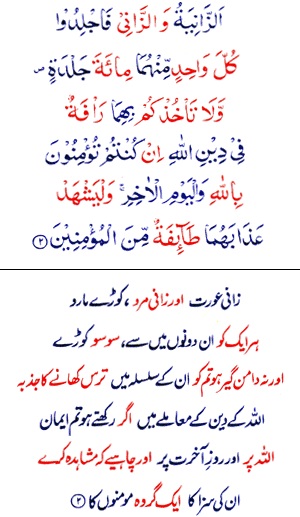 اَلزَّانِيَةُ وَ الزَّانِيْ فَاجْلِدُوْا
كُلَّ وَاحِدٍ مِّنْهُمَا مِائَةَ جَلْدَةٍ ص
وَّلَا تَاْخُذْكُمْ بِهِمَا رَاْفَةٌ
فِيْ دِيْنِ اللّٰهِ اِنْ كُنْتُمْ تُؤْمِنُوْنَ
بِاللّٰهِ وَالْيَوْمِ الْاٰخِرِ ۚ وَلْيَشْهَدْ
عَذَابَهُمَا طَآئِفَةٌ مِّنَ الْمُؤْمِنِيْنَ ②
زانی عورت اور زانی مرد، کوڑے مارو
ہر ایک کو ان دونوں میں سے، سو سو کوڑے
اور نہ دامن گیر ہو تم کو ان کے سلسلہ میں ترس کھانے کا جذبہ
اللہ کے دین کے معاملے میں اگر رکھتے ہو تم ایمان
اللہ پر اور روزِ آخرت پر اور چاہیے کہ مشاہدہ کرے
ان کی سزا کا ایک گروہ مومنوں کا ②